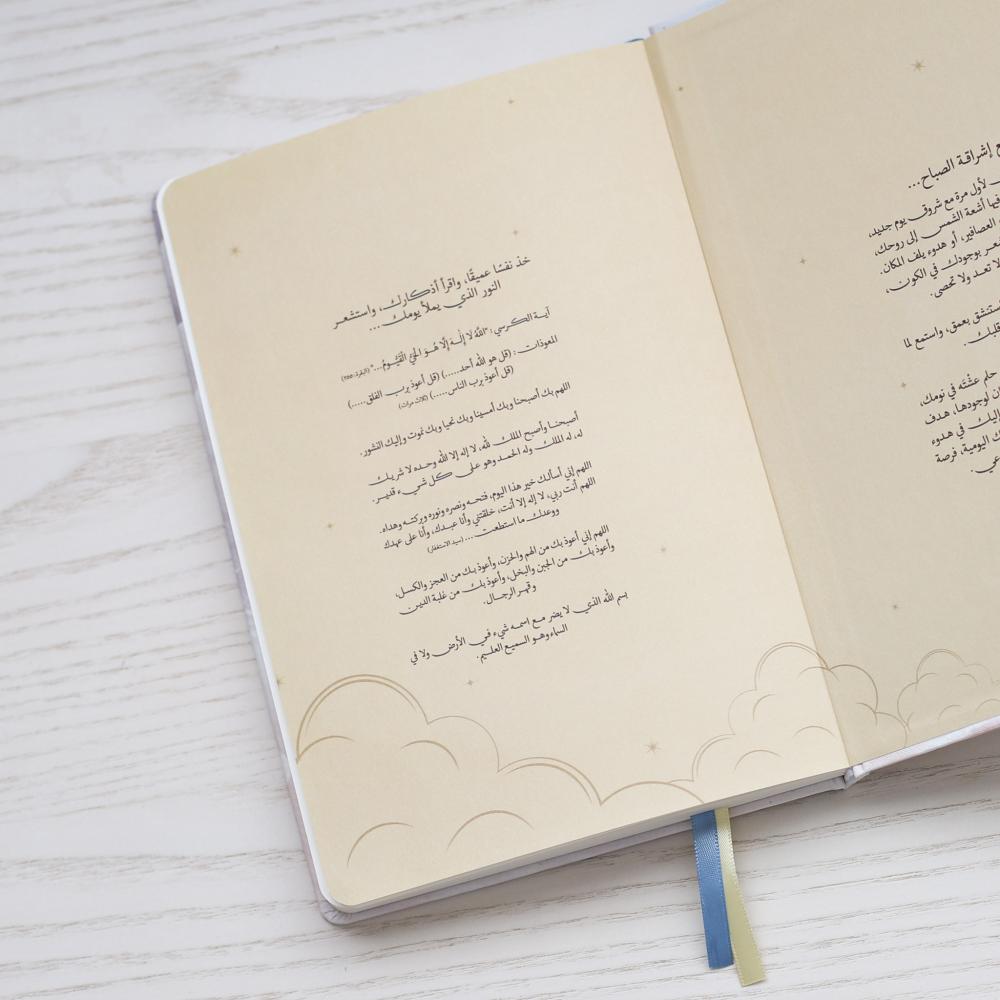 ع إشراقة الصباح...
لأول مرة مع شروق يوم جديد،
فيها أشعة الشمس إلى روحك،
العصافير، أو هدوء يلف المكان.
بوجودك في الكون،
لا تعد ولا تحصى.
ستنشق بعمق، واستمع لما
قلبك.
حلم عشته في نومك،
لوجودها، هدف
إليك في هدوء
اليومية، فرصة
خذ نفسًا عميقًا، واقرأ أذكارك، واستشعر
النور الذي يملأ يومك...
آية الكرسي: "اللَّهُ لَا إِلَٰهَ إِلَّا هُوَ الْحَيُّ الْقَيُّومُ..." (البقرة: ٢٥٥)
المعوذات: (قل هو الله أحد.....) (قل أعوذ برب الفلق.....)
(قل أعوذ برب الناس.....) (ثلاث مرات)
اللهم بك أصبحنا وبك أمسينا وبك نحيا وبك نموت وإليك النشور.
أصبحنا وأصبح الملك لله، لا إله إلا الله وحده لا شريك
له، له الملك وله الحمد وهو على كل شيء قدير.
اللهم إني أسألك خير هذا اليوم، فتحه ونصره ونوره وبركته وهداه.
اللهم أنت ربي، لا إله إلا أنت، خلقتني وأنا عبدك، وأنا على عهدك
ووعدك ما استطعت... (سيد الاستغفار)
اللهم إني أعوذ بك من الهم والحزن، وأعوذ بك من العجز والكسل،
وأعوذ بك من الجبن والبخل، وأعوذ بك من غلبة الدين
وقهر الرجال.
بسم الله الذي لا يضر مع اسمه شيء في الأرض ولا في
السماء وهو السميع العليم.